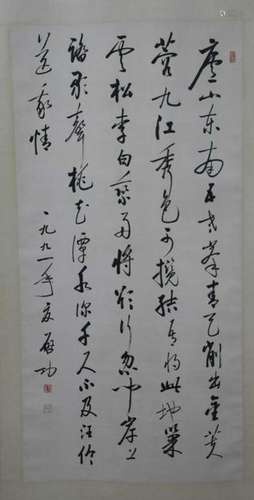 廬山东南五老峯青天削出金芙
蓉九江秀色可攬結吾将此地巢
雲松李白乘舟将欲行忽闻岸上
踏歌聲桃花潭水深千尺不及汪倫
送我情
一九九一年夏 启功